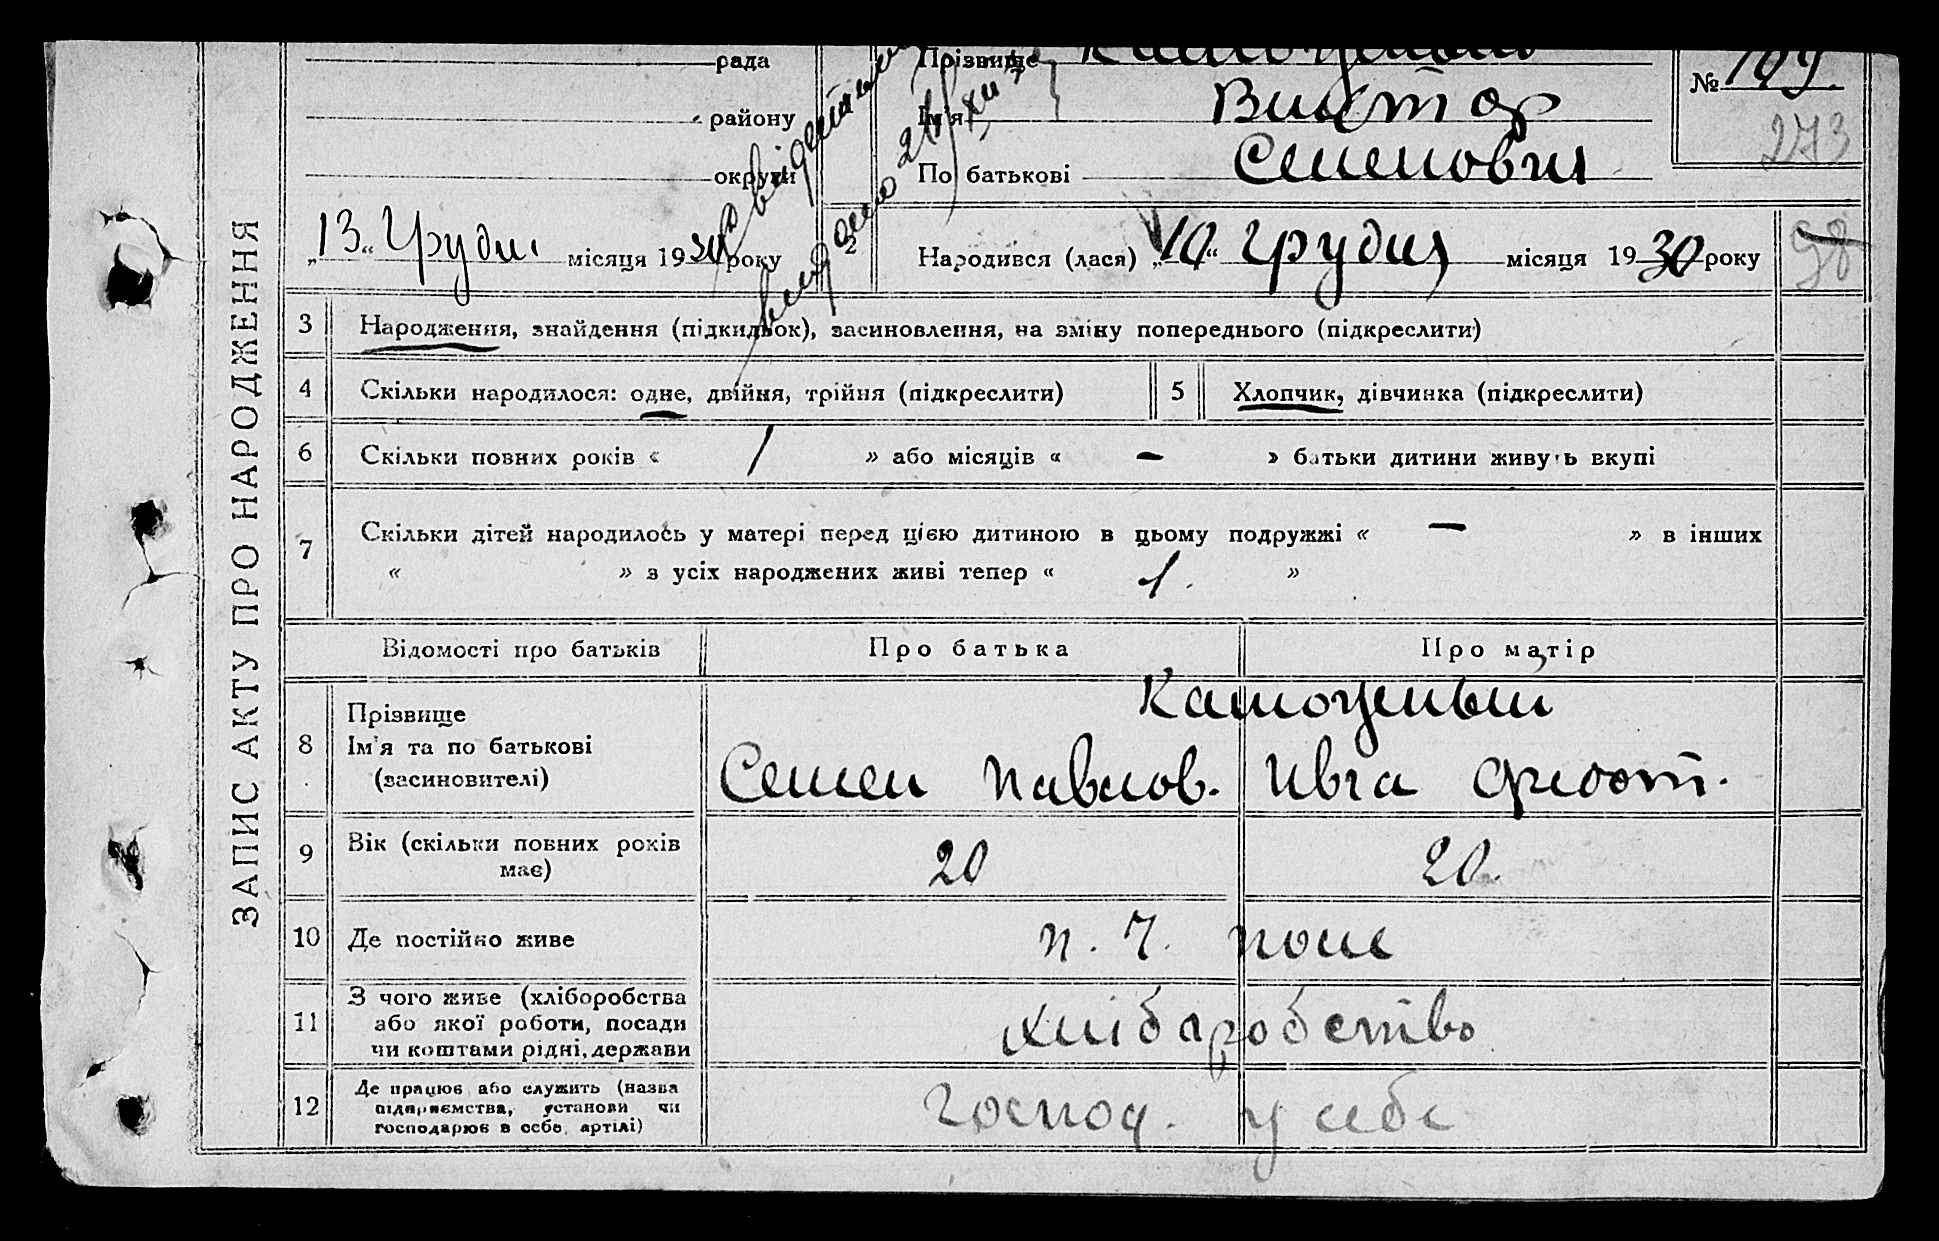 ЗАПИС АКТУ ПРО НАРОДЖЕННЯ
рада
району
округи
„13“ Грудн. місяця 1930 року
Прізвище
Ім'я Виктор
По батькові Семенович
№ 109.
273
98
2 Народився (лася) „10“ грудня місяця 1930 року
3 Народження, знайдення (підкидьок), засиновлення, на зміну попереднього (підкреслити)
4 Скільки народилося: одне, двійня, трійня (підкреслити)
5 Хлопчик, дівчинка (підкреслити)
6 Скільки повних років « 1 » або місяців « – » батьки дитини живуть вкупі
7 Скільки дітей народилось у матері перед цією дитиною в цьому подружжі « – » в інших
« » з усіх народжених живі тепер « 1. »
Відомості про батьків Про батька Про матір
8 Прізвище
Ім'я та по батькові
(засиновителі)
Семен Павлов. Ивга Федот.
9 Вік (скільки повних років
має) 20 20.
10 Де постійно живе п. 7. поле
11 З чого живе (хліборобства
або якої роботи, посади
чи коштами рідні, держави
хліборобство
12 Де працює або служить (назва
підприємства, установи чи
господарює в себе, артілі)
Господ. у себе